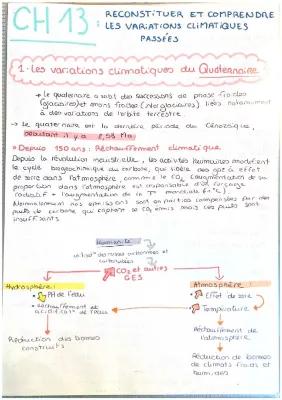 CH 13 : RECONSTITUER ET COMPRENDRE
LES VARIATIONS CLIMATIQUES
PASSÉES
1. Les variations climatiques du Quaternaire
→ Le quaternaire a subit des successions de phase froides
(glaciaires) et moins froides (interglaciaires) liées notamment
à des variations de l'orbite terrestre.
→ Le quaternaire est la dernière période du Cénozoïque,
débutant il y a 2,58 Ma.
» Depuis 150 ans : Réchauffement climatique.
Depuis la révolution industrielle, les activités humaines modifient
le cycle biogéochimique du carbone, qui libère des gaz à effet
de serre dans l'atmosphère, comme le CO2 (l'augmentation de sa
proportion dans l'atmosphère est responsable d'un forçage
radiatif = l'augmentation de la T° mondiale
Normalement nos émissions sont en parties compensées par des
puits de carbone qui captent se CO2 émis mais ces puits sont
insuffisants
Humanité
utilisat° des roches carbonées et
carbonatées
CO2 et autres
GES
Hydrosphère :
PH de l'eau
réchauffement et
acidificat° de l'eau
Réduction des bornes
Atmosphère :
Effet de serre
Température
Réchauffement de
l'atmosphère
Réduction de bornes
de climats froids et
humides